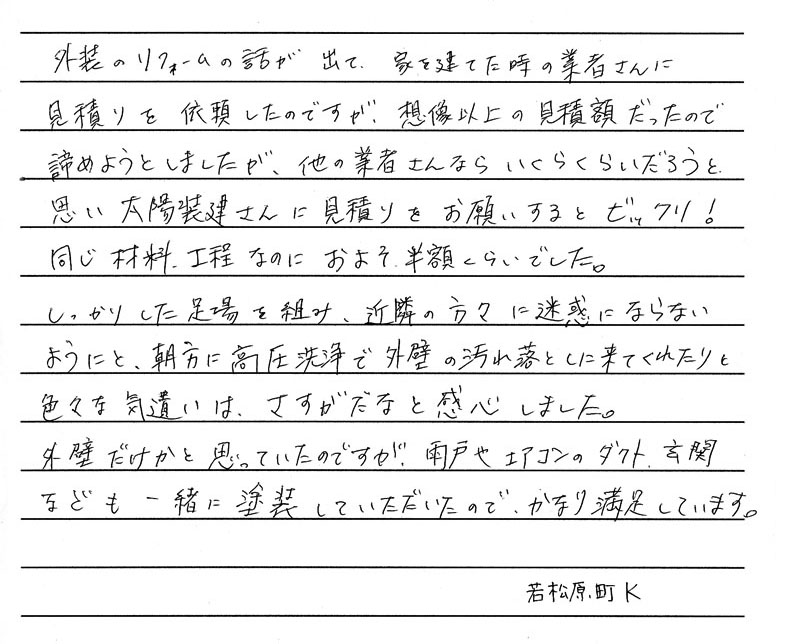 外装のリフォームの話が出て、家を建てた時の業者さんに
見積りを依頼したのですが、想像以上の見積額だったので
諦めようとしましたが、他の業者さんならいくらくらいだろうと、
思い太陽装建さんに見積りをお願いするとビックリ!
同じ材料、工程なのにおよそ半額くらいでした。
しっかりした足場を組み、近隣の方々に迷惑にならない
ようにと、朝方に高圧洗浄で外壁の汚れ落としに来てくれたりと
色々な気遣いは、さすがだなと感心しました。
外壁だけかと思っていたのですが、雨戸やエアコンのダクト、玄関
なども一緒に塗装していただいたので、かなり満足しています。
若松原町 K